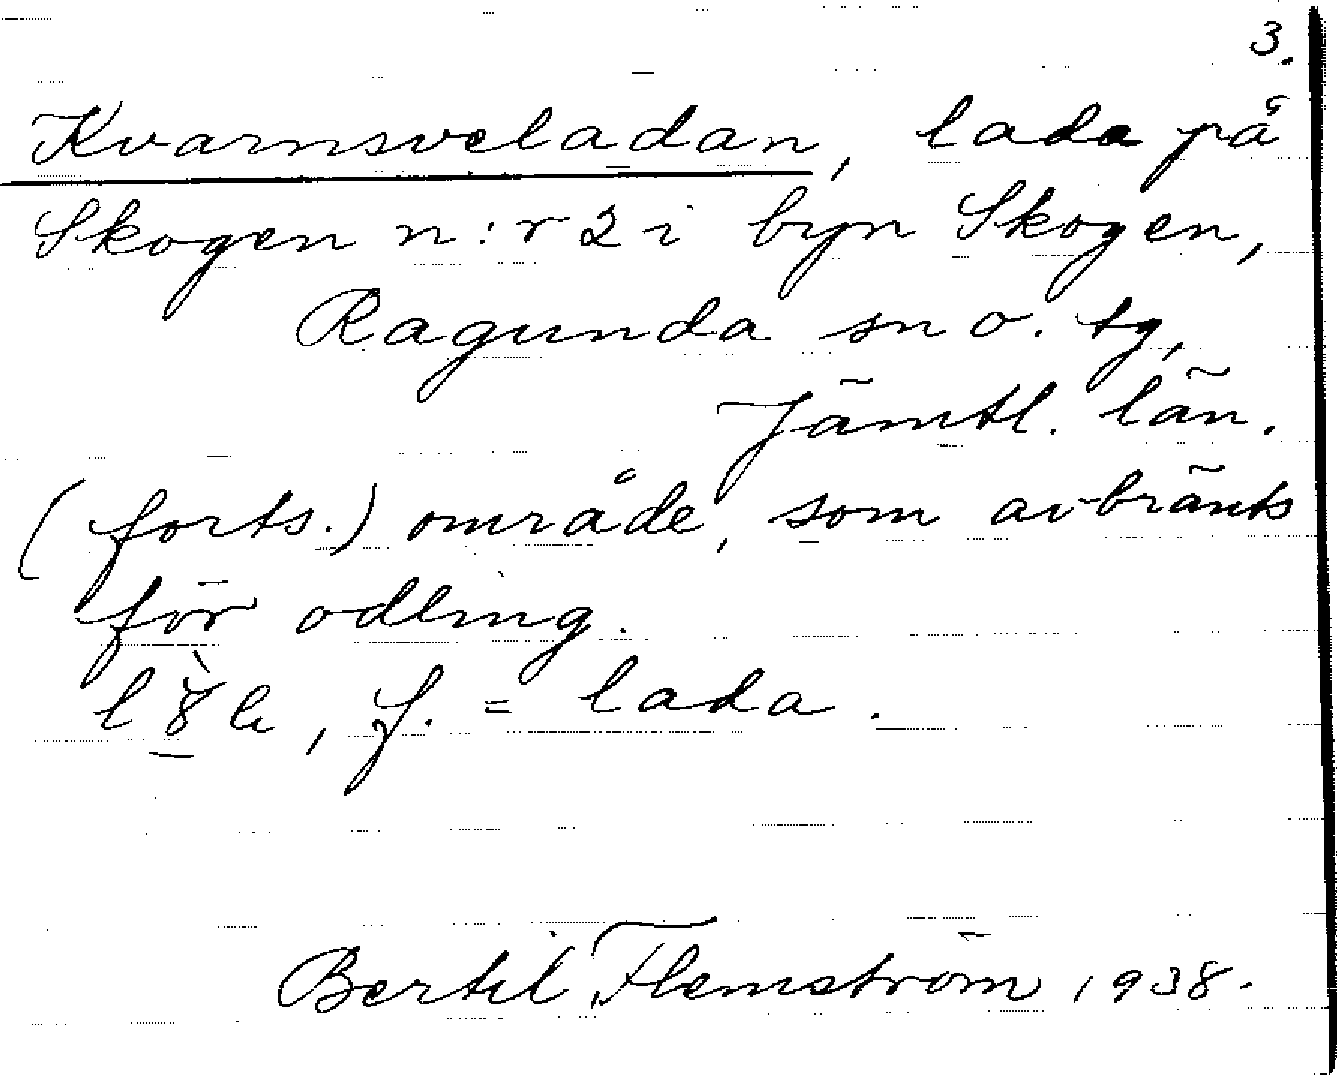 3.
Kvarnsveladan, lada på
Skogen n:r 2 i byn Skogen,
Ragunda sn o. tg,
Jämtl. län.
(forts.) område, som avbränts
för odling.
f. = lada.
Bertil Flemström 1938.